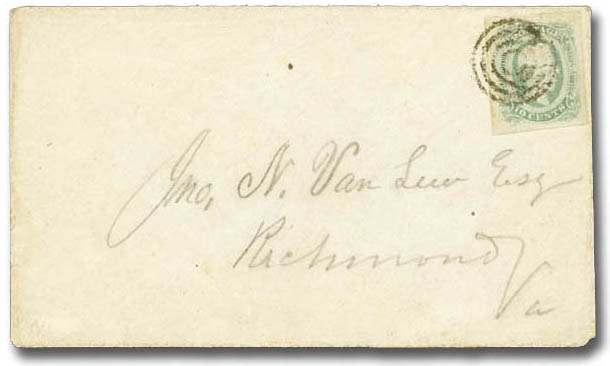 10 CENTS
Jno, N. Van Lew Esq
Richmond
Va